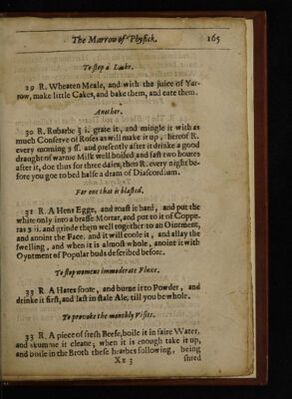 The Marrow of Physick. 165
To stop a Laske.
29 R. Wheaten Meale, and with the juice of Yar-
row, make little Cakes, and bake them, and eate them.
Another.
30 R. Rubarbe ℥ i. grate it, and mingle it with as
much Conserve of Roses as will make it up; hereof R.
every morning ʒ ss. and presently after it drinke a good
draught of warme Milk well boiled, and fast two houres
after it, doe thus for three daies, then R. every night be-
fore you goe to bed halfe a dram of Diascordium.
For one that is blasted.
31 R. A Hens Egge, and roast it hard, and put the
white only into a brasse Mortar, and put to it of Coppe-
ras ʒ ii. and grinde them well together to an Ointment,
and anoint the Face, and it will coole it, and allay the
swelling, and when it is almost whole, anoint it with
Oyntment of Popular buds described before.
To stop womens immoderate Fluxe.
33 R. A Hares foote, and burne it to Powder, and
drinke it first, and last in stale Ale, till you be whole.
To provoke the monthly Visits.
33 R. A piece of fresh Beefe, boile it in faire Water,
and skumme it cleane; when it is enough take it up,
and boile in the Broth these hearbes following, being
Xx 3 shred